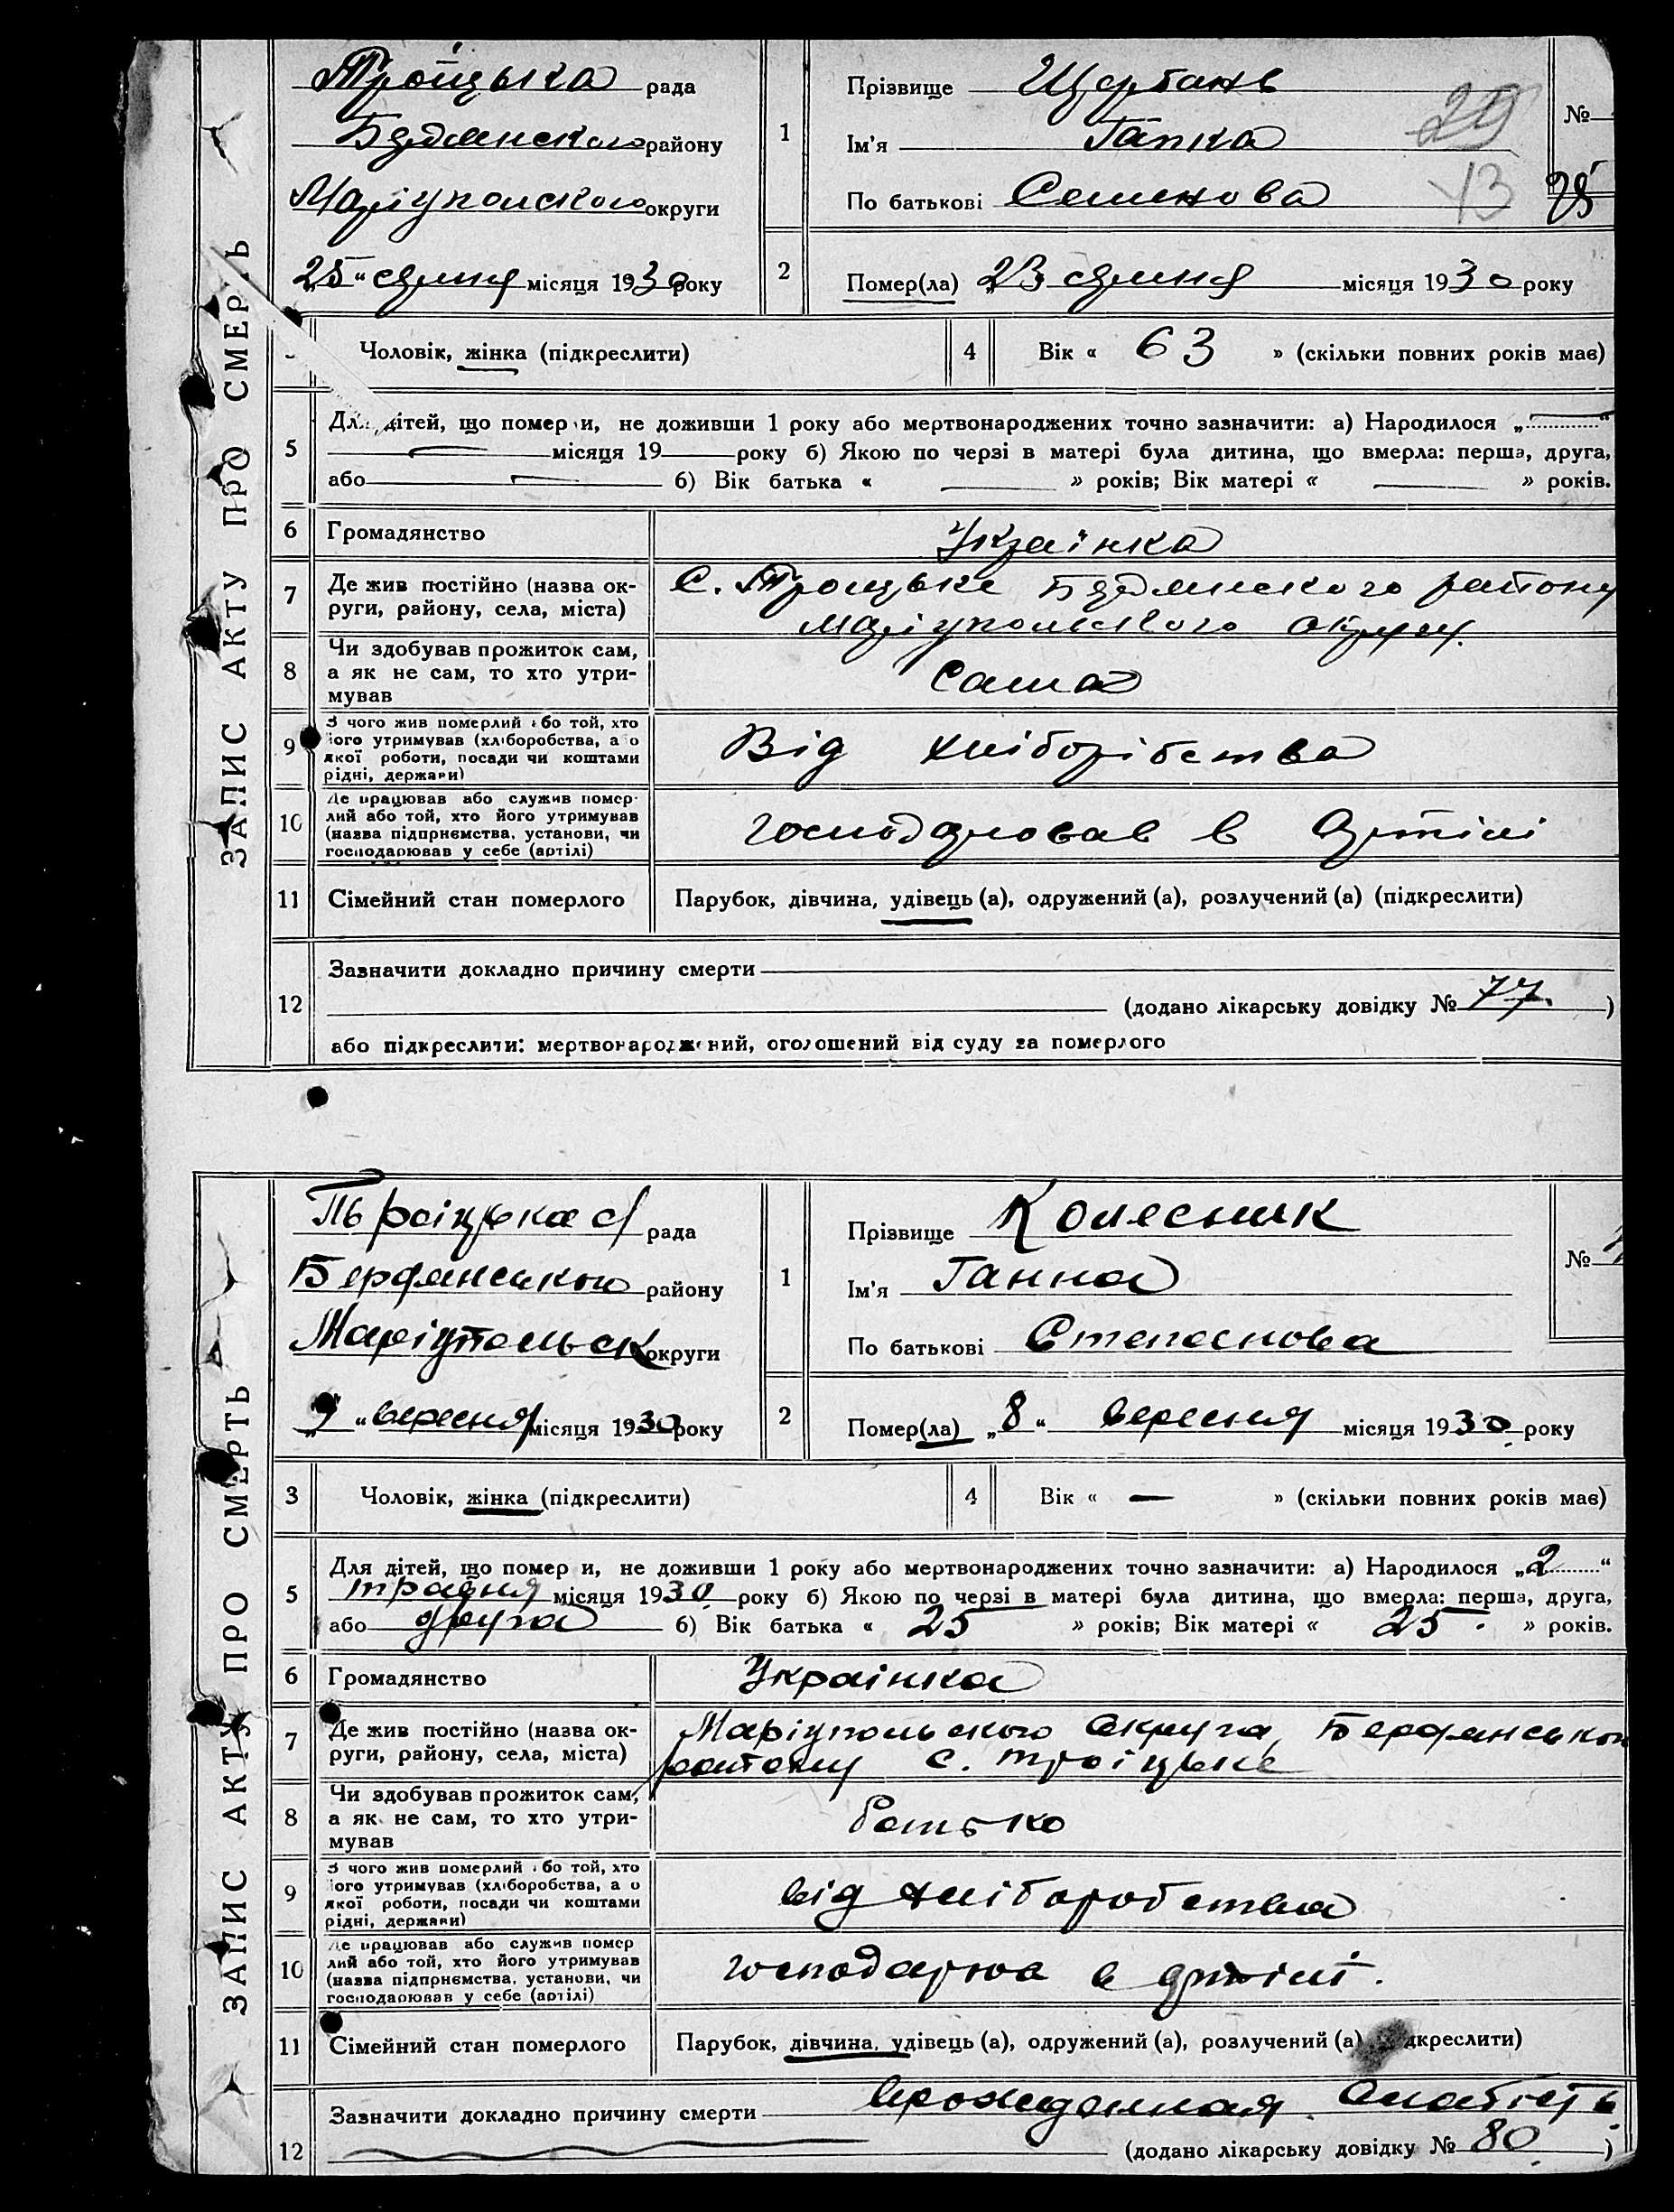 ЗАПИС АКТУ ПРО СМЕРТЬ
Троїцька рада
Бердянского району
Маріупольского округи
„25“ серпня місяця 1930 року
1
Прізвище Щербань
Ім'я Гапка
По батькові Семенова
№
29
43
2
Помер(ла) „23 серпня місяця 1930 року
Чоловік, жінка (підкреслити)
4 Вік « 63 » (скільки повних років має)
5
Для дітей, що помер и, не доживши 1 року або мертвонароджених точно зазначити: а) Народилося „ “
місяця 19 року б) Якою по черзі в матері була дитина, що вмерла: перша, друга,
або б) Вік батька « » років; Вік матері « » років.
6 Громадянство Українка
7 Де жив постійно (назва ок-
руги, району, села, міста)
С. Троіцьке Бердянского району
Маріупольського округи.
8 Чи здобував прожиток сам,
а як не сам, то хто утри-
мував
Сама
9 З чого жив померлий або той, хто
його утримував (хліборобства, або
якої роботи, посади чи коштами
рідні, держави)
Від хліборібства
10 Де працював або служив помер-
лий або той, хто його утримував
(назва підприємства, установи, чи
господарював у себе (артілі)
господарював в Артілі
11 Сімейний стан померлого Парубок, дівчина, удівець (а), одружений (а), розлучений (а) (підкреслити)
12 Зазначити докладно причину смерти
(додано лікарську довідку № 77. )
або підкреслити: мертвонароджений, оголошений від суду за померлого
ЗАПИС АКТУ ПРО СМЕРТЬ
Троіцька с/ рада
Бердянського району
Маріупольск округи
„9“ вересня місяця 1930 року
1
Прізвище Колесник
Ім'я Ганна
По батькові Степанова
№
2
Помер(ла) „8“ вересня місяця 1930 року
3 Чоловік, жінка (підкреслити)
4 Вік « — » (скільки повних років має)
5
Для дітей, що помер и, не доживши 1 року або мертвонароджених точно зазначити: а) Народилося „2“
травня місяця 1930 року б) Якою по черзі в матері була дитина, що вмерла: перша, друга,
або друга б) Вік батька « 25 » років; Вік матері « 25. » років.
6 Громадянство Украінка
7 Де жив постійно (назва ок-
руги, району, села, міста)
Маріупольского Округа, Бердянсько
району с. Троіцьке
8 Чи здобував прожиток сам,
а як не сам, то хто утри-
мував
батько
9 З чого жив померлий або той, хто
його утримував (хліборобства, або
якої роботи, посади чи коштами
рідні, держави)
від хліборобства
10 Де працював або служив помер
лий або той, хто його утримував
(назва підприємства, установи, чи
господарював у себе (артілі)
господарюа в артілі.
11 Сімейний стан померлого Парубок, дівчина, удівець (а), одружений (а), розлучений (а) (підкреслити)
12 Зазначити докладно причину смерти врожденная слабість
(додано лікарську довідку № 80. )